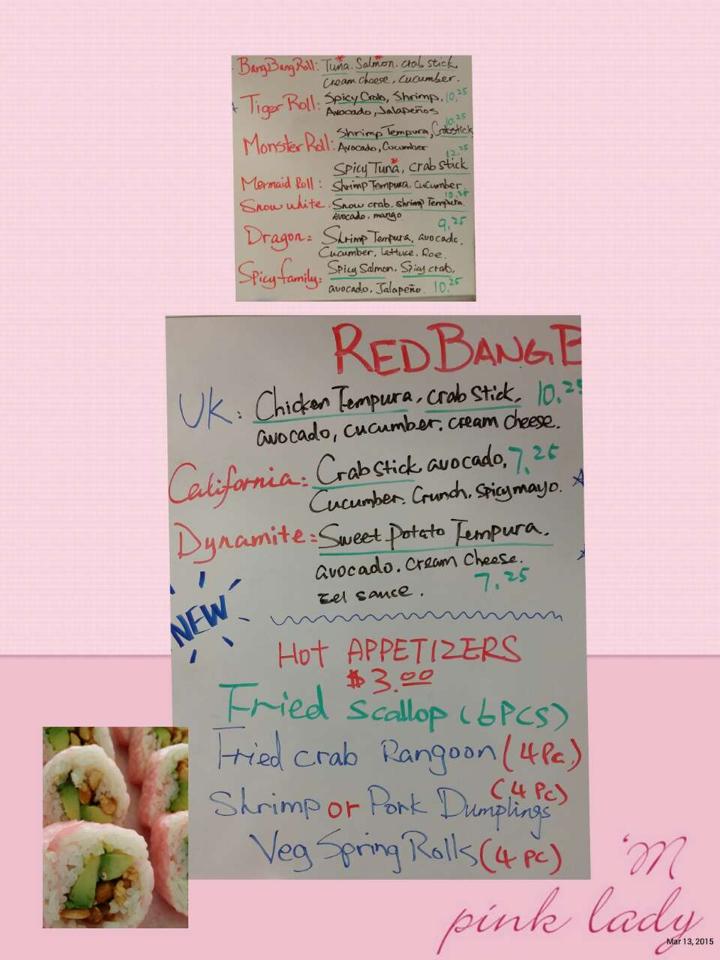 BangBangRoll: Tuna. Salmon. crab stick,
cream cheese, cucumber.
Tiger Roll: Spicy Crab, Shrimp, 10.25
Avocado, Jalapeños
Monster Roll: Shrimp Tempura, Crabstick 10.25
Avocado, Cucumber
12.25
Spicy Tuna, crab stick
Mermaid Roll: Shrimp Tempura. Cucumber
10.25
Snow white: Snow crab. shrimp Tempura
Avocado. mango
9.25
Dragon: Shrimp Tempura, avocado.
Cucumber, Lettuce. Roe.
Spicy family: Spicy Salmon. Spicy crab,
avocado, Jalapeño. 10.25
RED BANG B
UK: Chicken Tempura, crab Stick, 10.25
avocado, cucumber. cream cheese.
California: Crab stick, avocado, 7.25
Cucumber. Crunch. Spicy mayo.
Dynamite: Sweet Potato Tempura.
avocado. Cream Cheese.
Eel sauce. 7.25
NEW
Hot APPETIZERS
$3.00
Fried Scallop (6PCS)
Fried crab Rangoon (4Pc.)
(4 Pc)
Shrimp or Pork Dumplings
Veg Spring Rolls (4 PC)
'M
pink lady
Mar 13, 2015